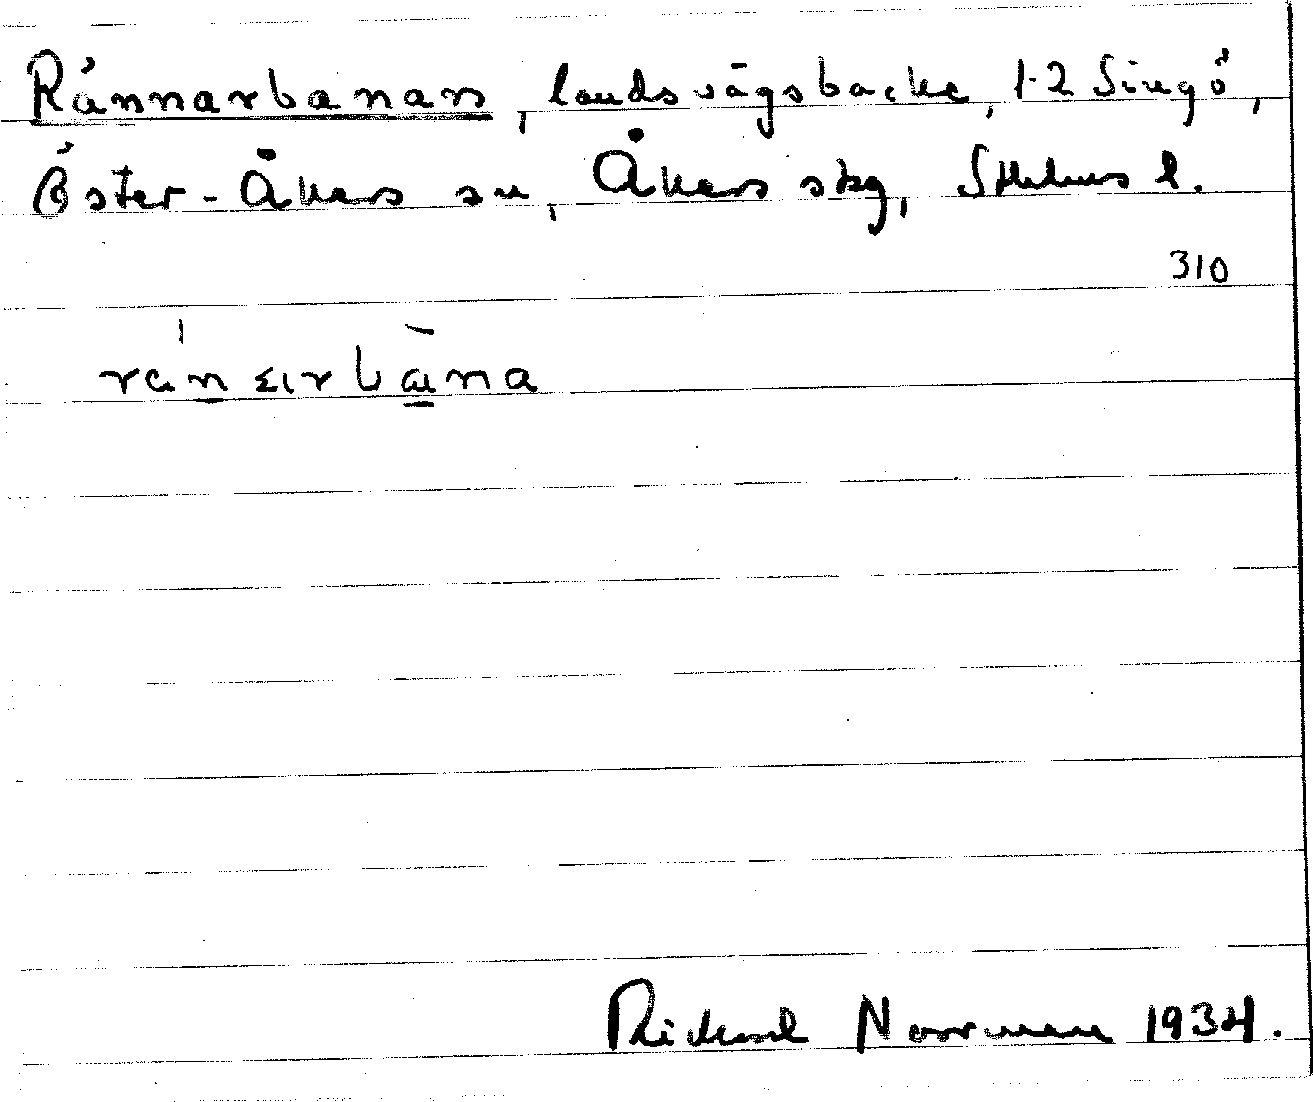 Rännarbanan, landsvägsbacke, 1-2 Singö,
Öster-Åkers sn, Åkers skg, Sthlms l.
310
Rickard Norrman 1934.